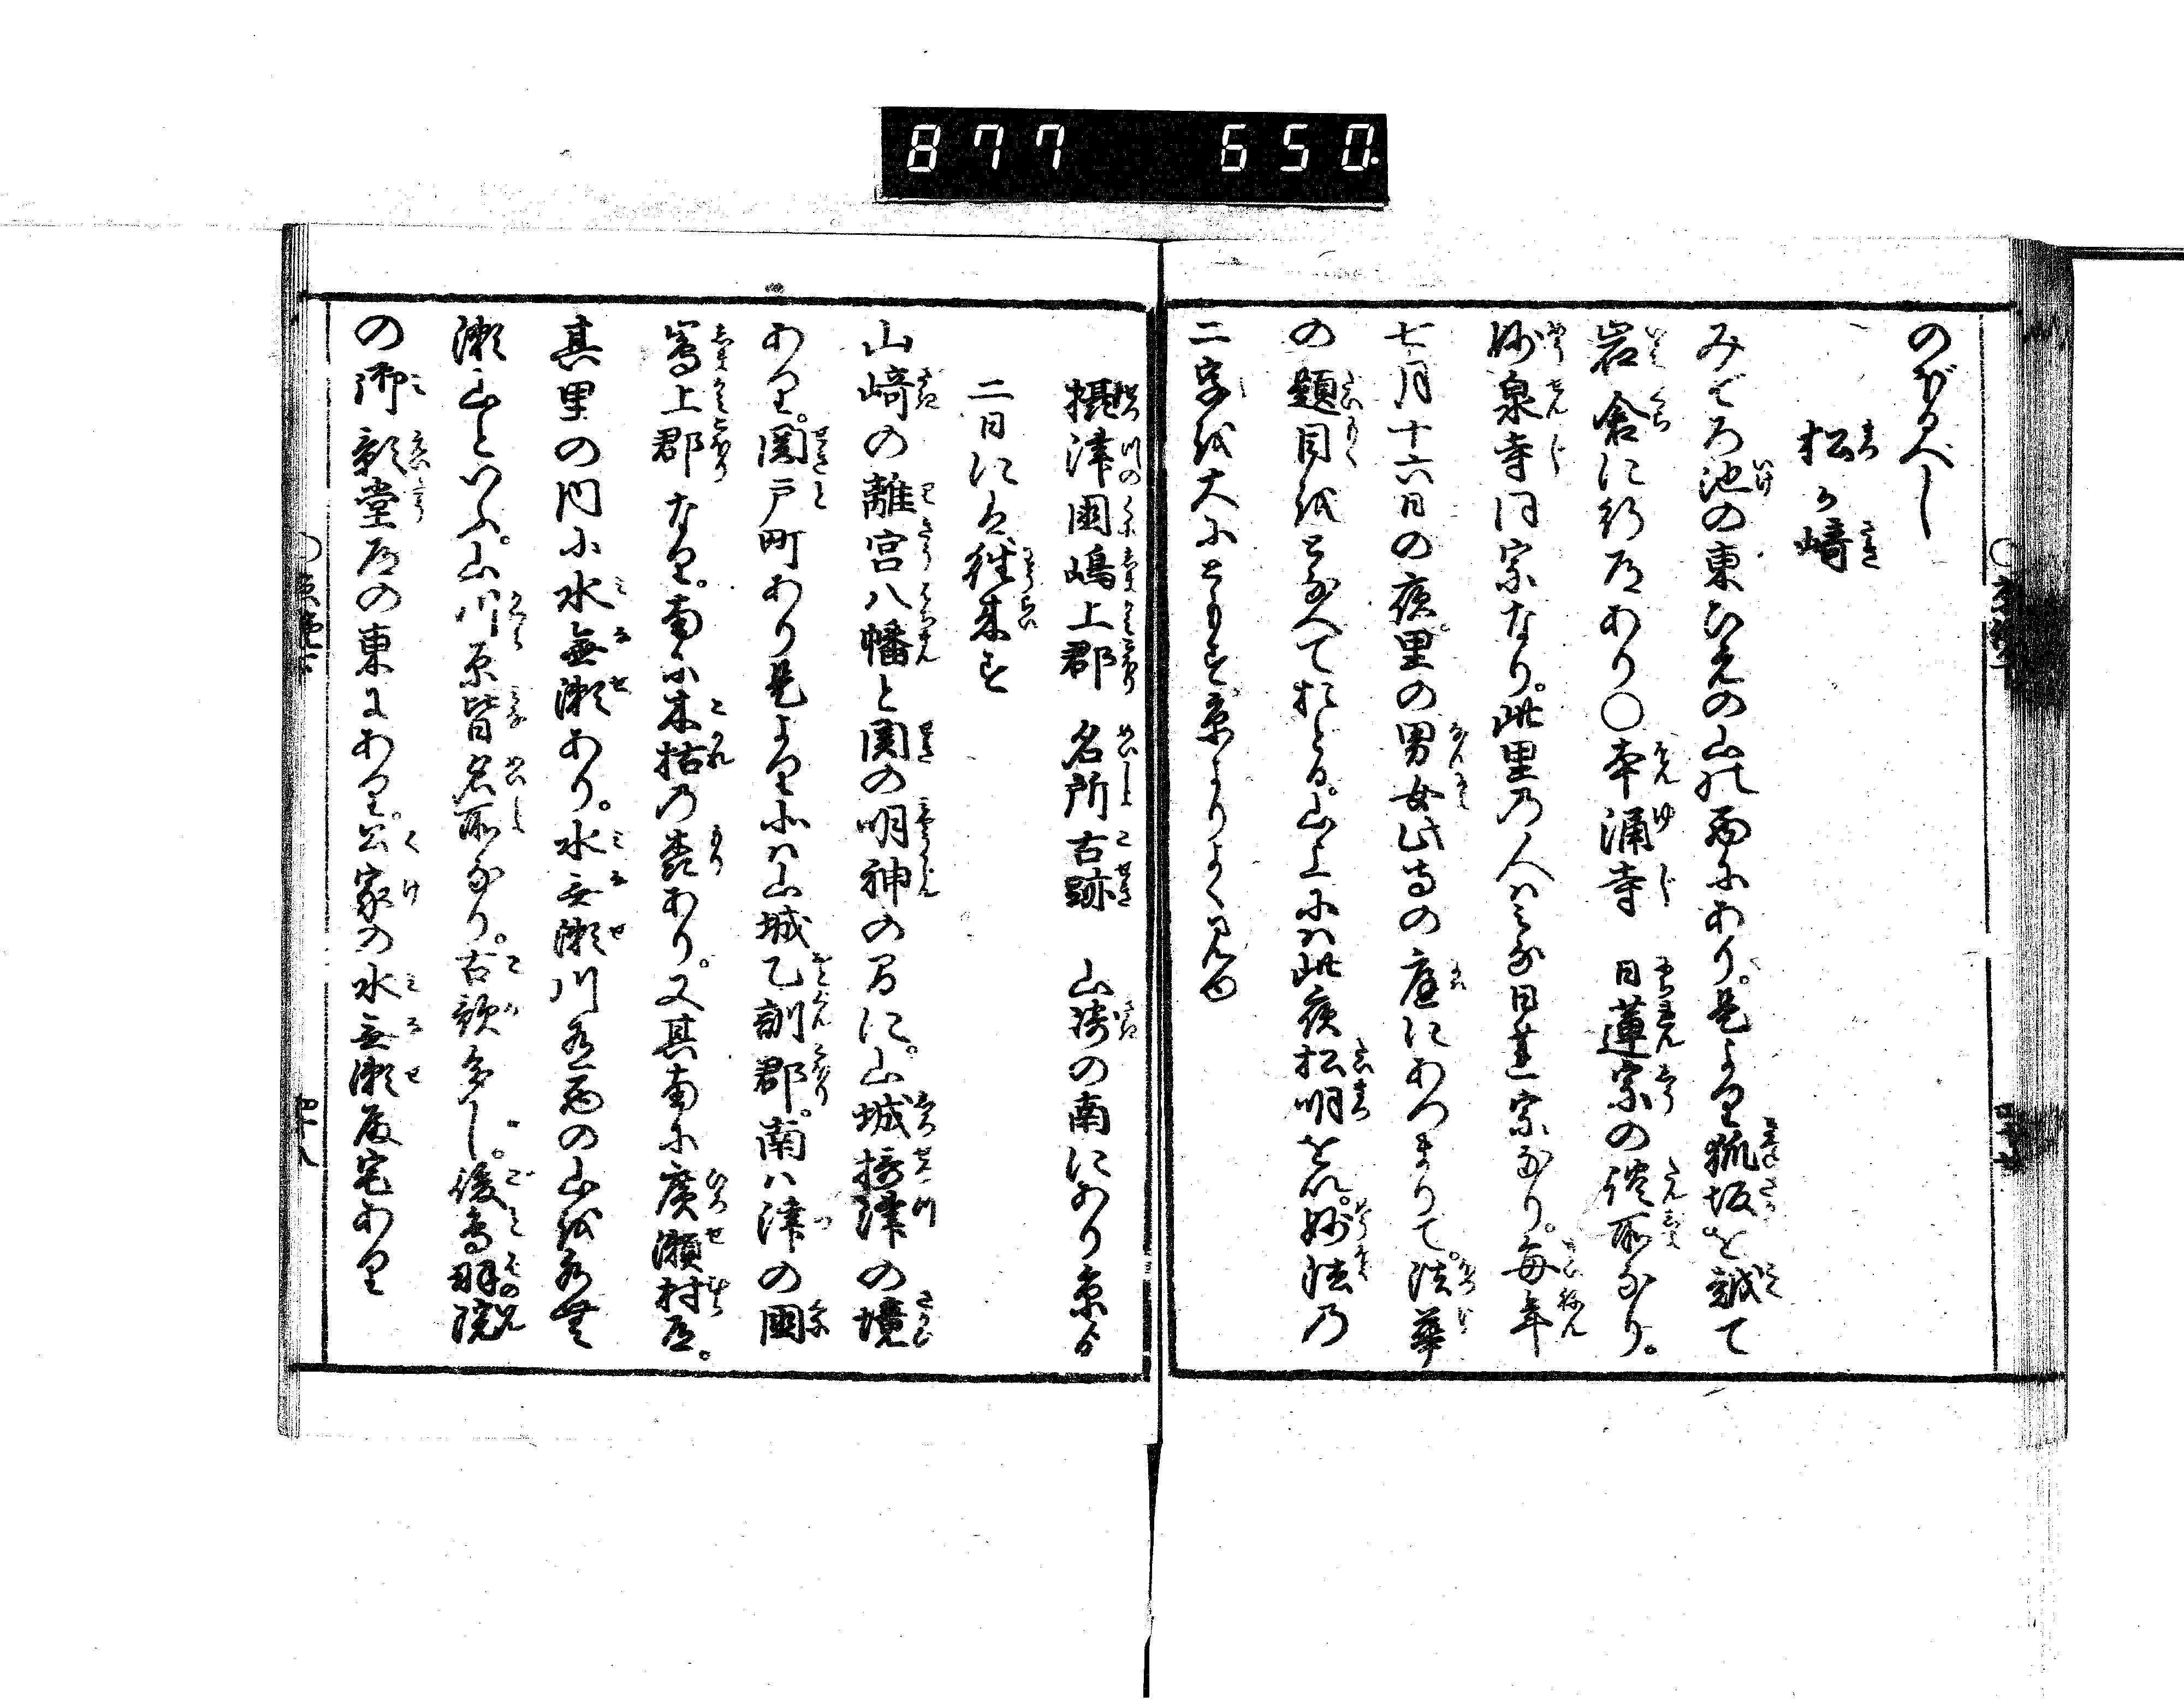 877 650.
のぼるべし
松か崎
みぞろ池の東ひえの山の西にあり。是より狐坂を越て
岩倉に行道あり〇本涌寺 日蓮宗の談所なり。
妙泉寺同宗なり。此里の人はみな日蓮宗なり。毎年
七月十六日の夜。里の男女此寺の庭にあつまりて。法華
の題目をとなへておどる。山上には此夜松明を以。妙法の
二字を大にともす京よりよく見ゆ
摂津国嶋上郡 名所古跡 山崎の南にあり京より
二日には往来す
山崎の離宮八幡と関の明神の間に。山城摂津の境
あり。関戸町あり是より北は山城乙訓郡。南は津の国
嶌上郡なり。南に木枯の森あり。又其南に廣瀬村有。
其里の内に水無瀬あり。水無瀬川有西の山を水無
瀬山といふ。山川原皆名所なり。古歌多し。後鳥羽院
の御影堂道の東にあり。公家の水無瀬殿宅あり